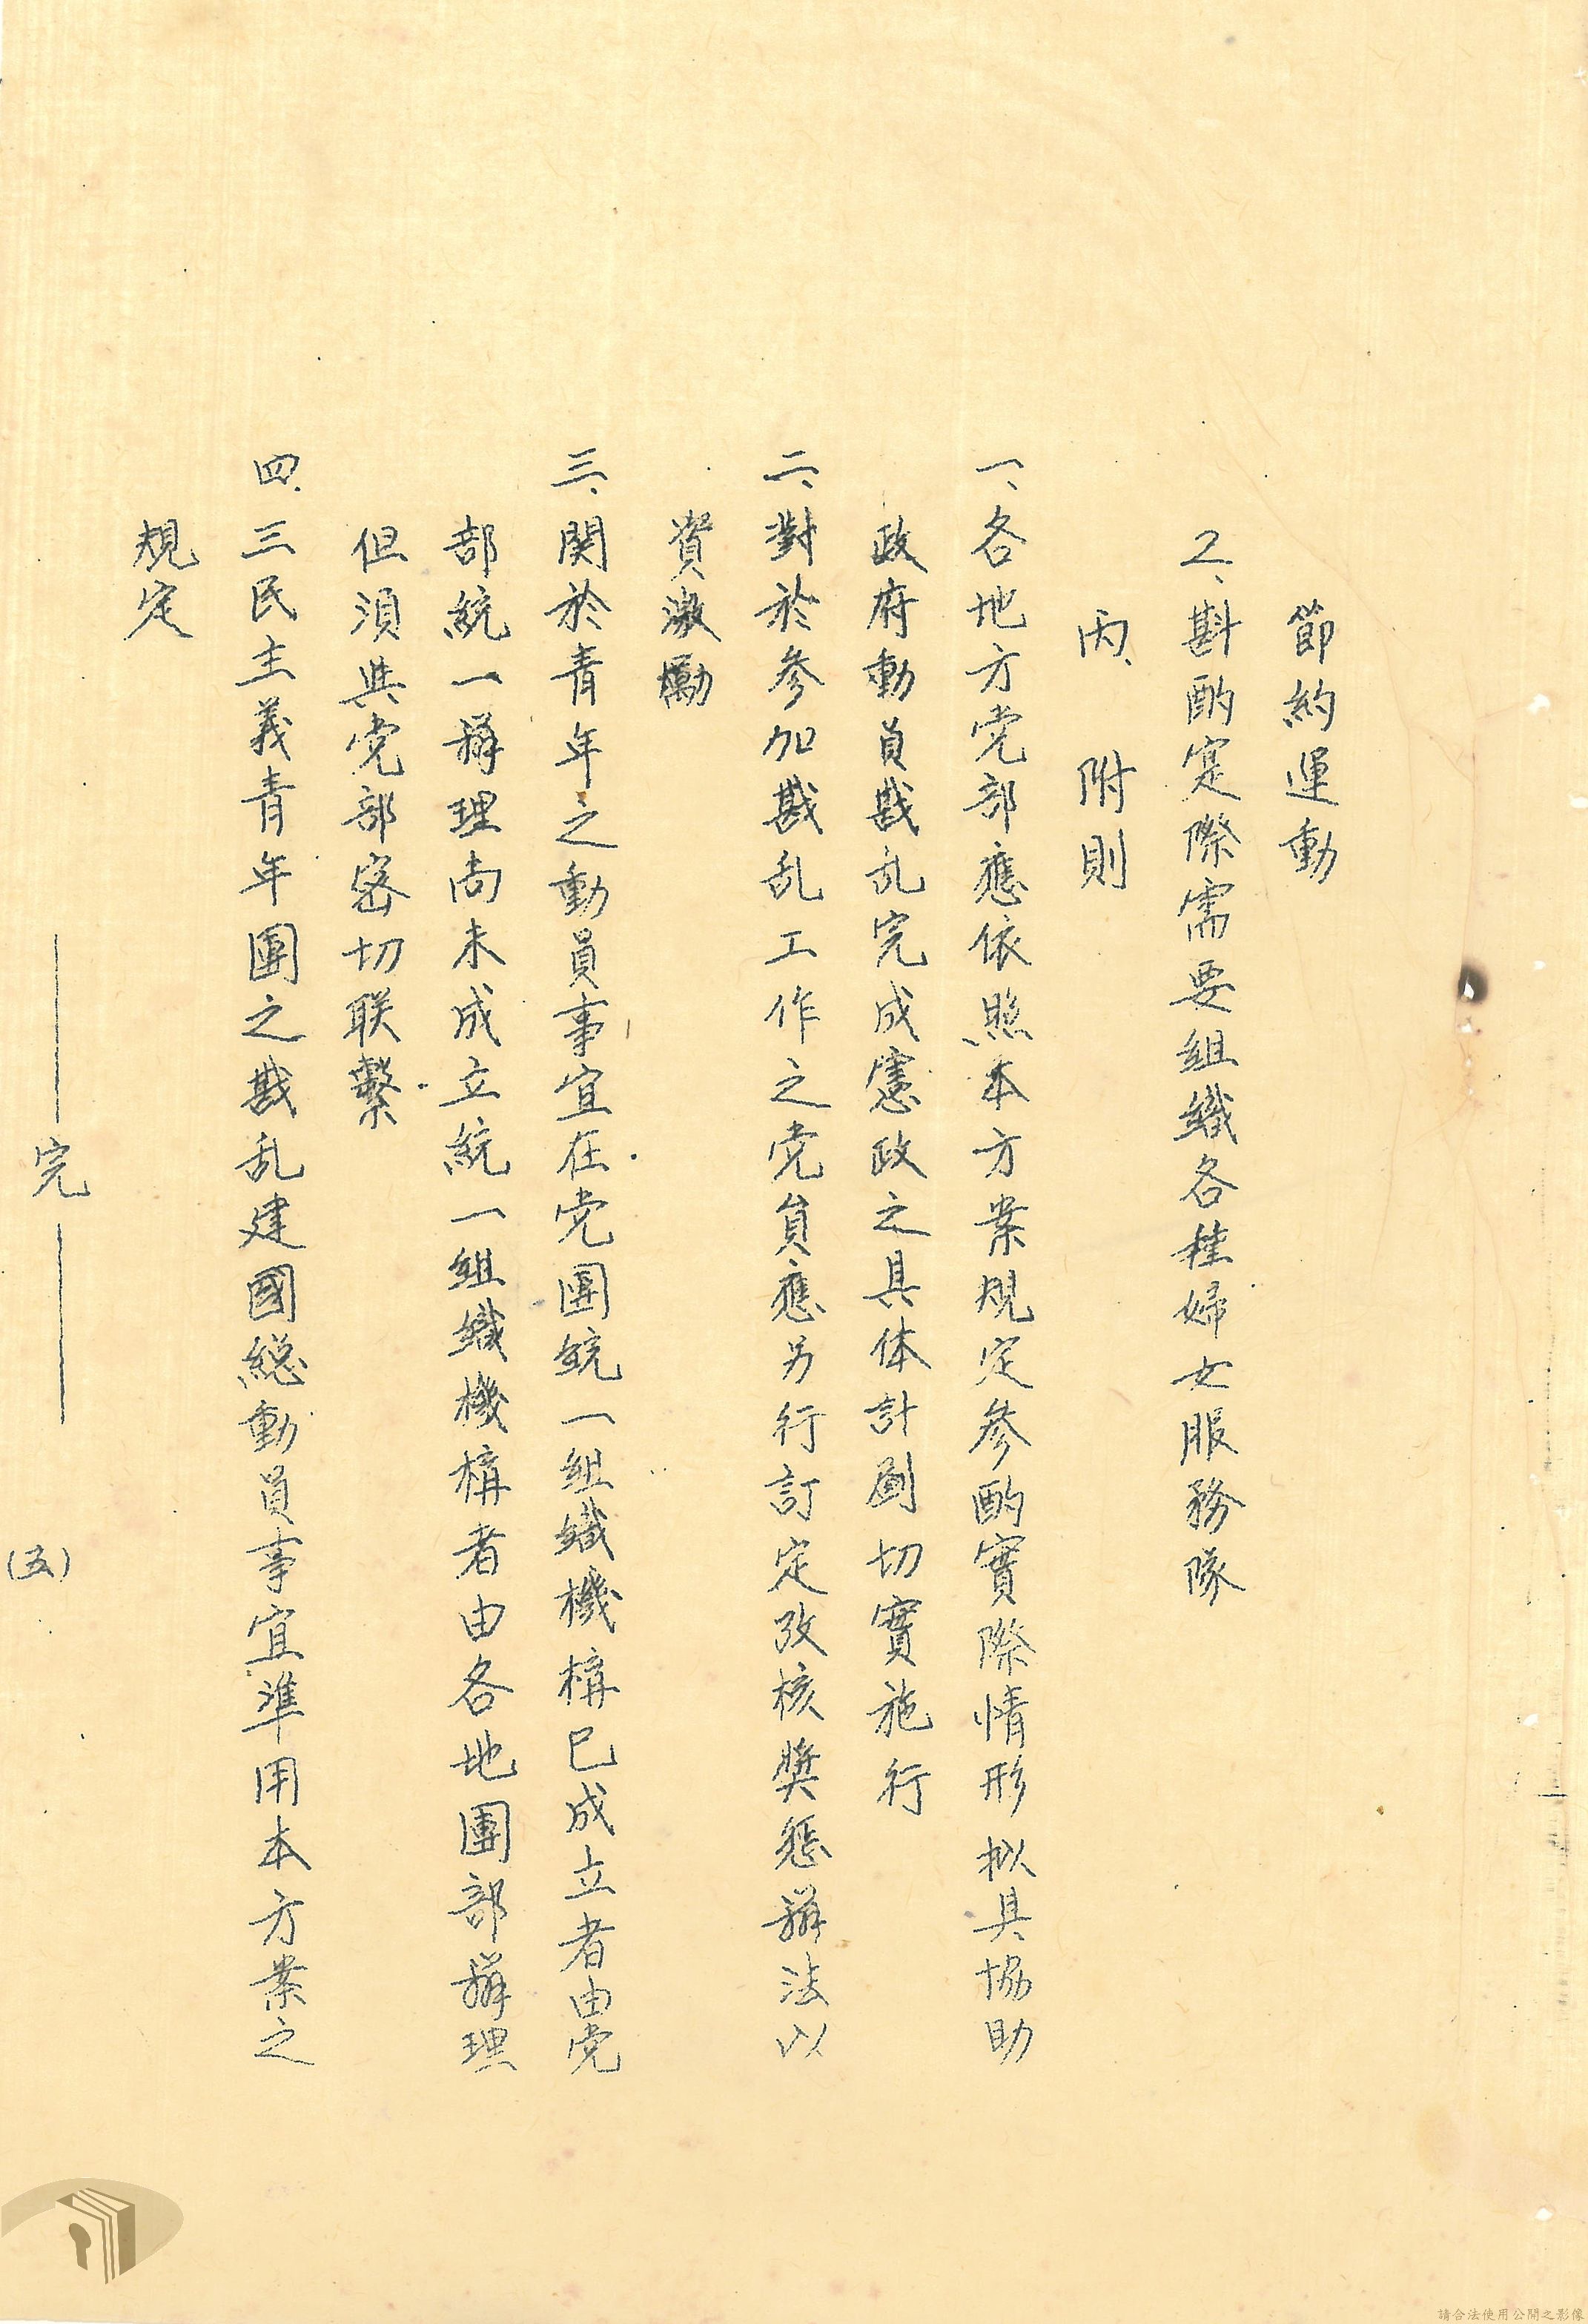 節約運動
2、斟酌寔際需要組織各種婦女服務隊
丙、附則
一、各地方党部應依照本方案規定參酌實際情形拟具協助
政府動員戡乱完成憲政之具体計劃切實施行
二、對於參加戡乱工作之党員應另行訂定攷核獎懲辦法以
資激勵
三、関於青年之動員事宜在党團統一組織機構已成立者由党
部統一辦理尚未成立統一組織機構者由各地團部辦理
但須與党部密切联繫
四、三民主義青年團之戡乱建國總動員事宜準用本方案之
規定
——完——
(五)
請合法使用公開之影像